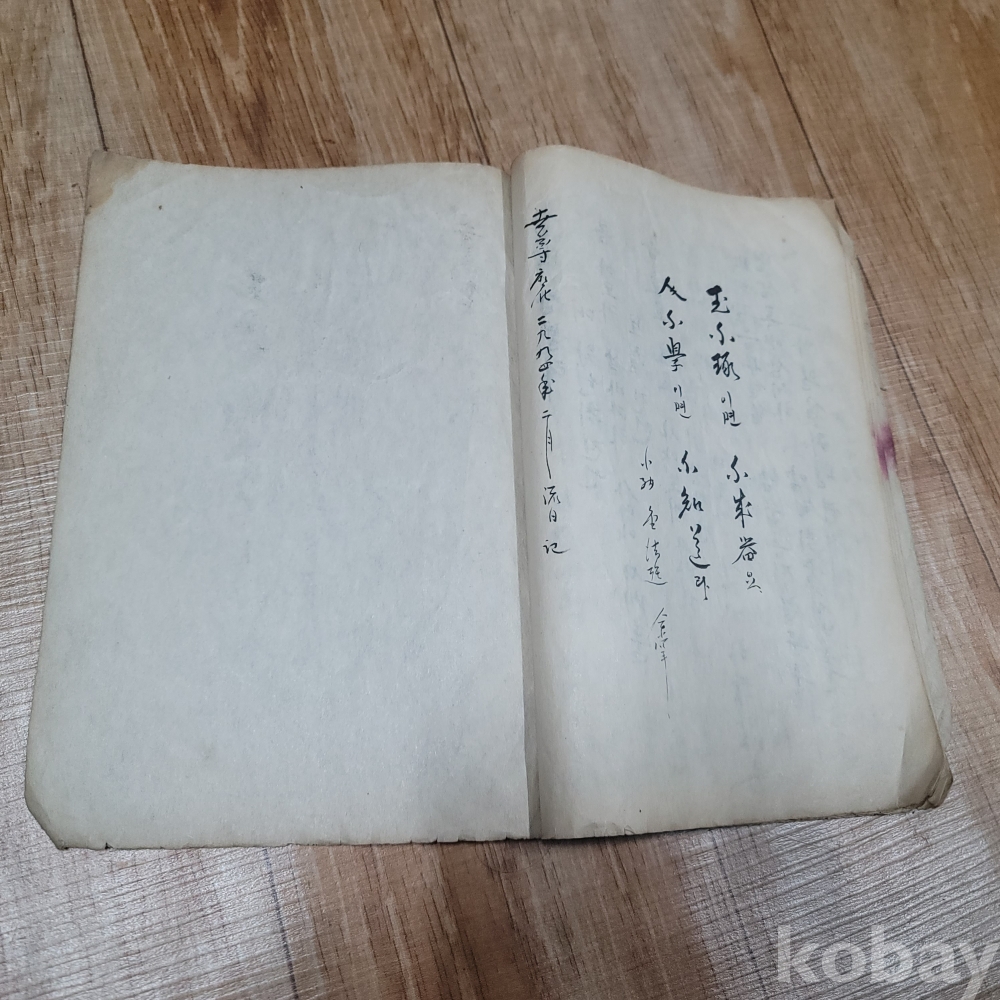 玉不琢이면 不成器요
人不學이면 不知道라
世尊應化二九九四年二月 流日記
kobay